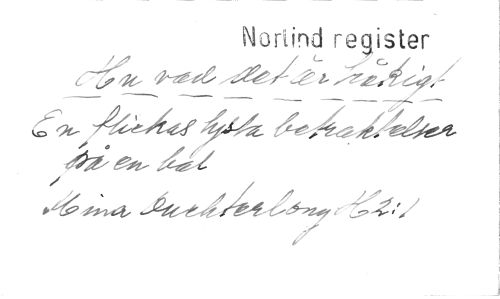 Norlind register
Hu vad det är tråkigt
En flickas tysta betraktelser
på en bal
Mina Ouchterlony H2:1